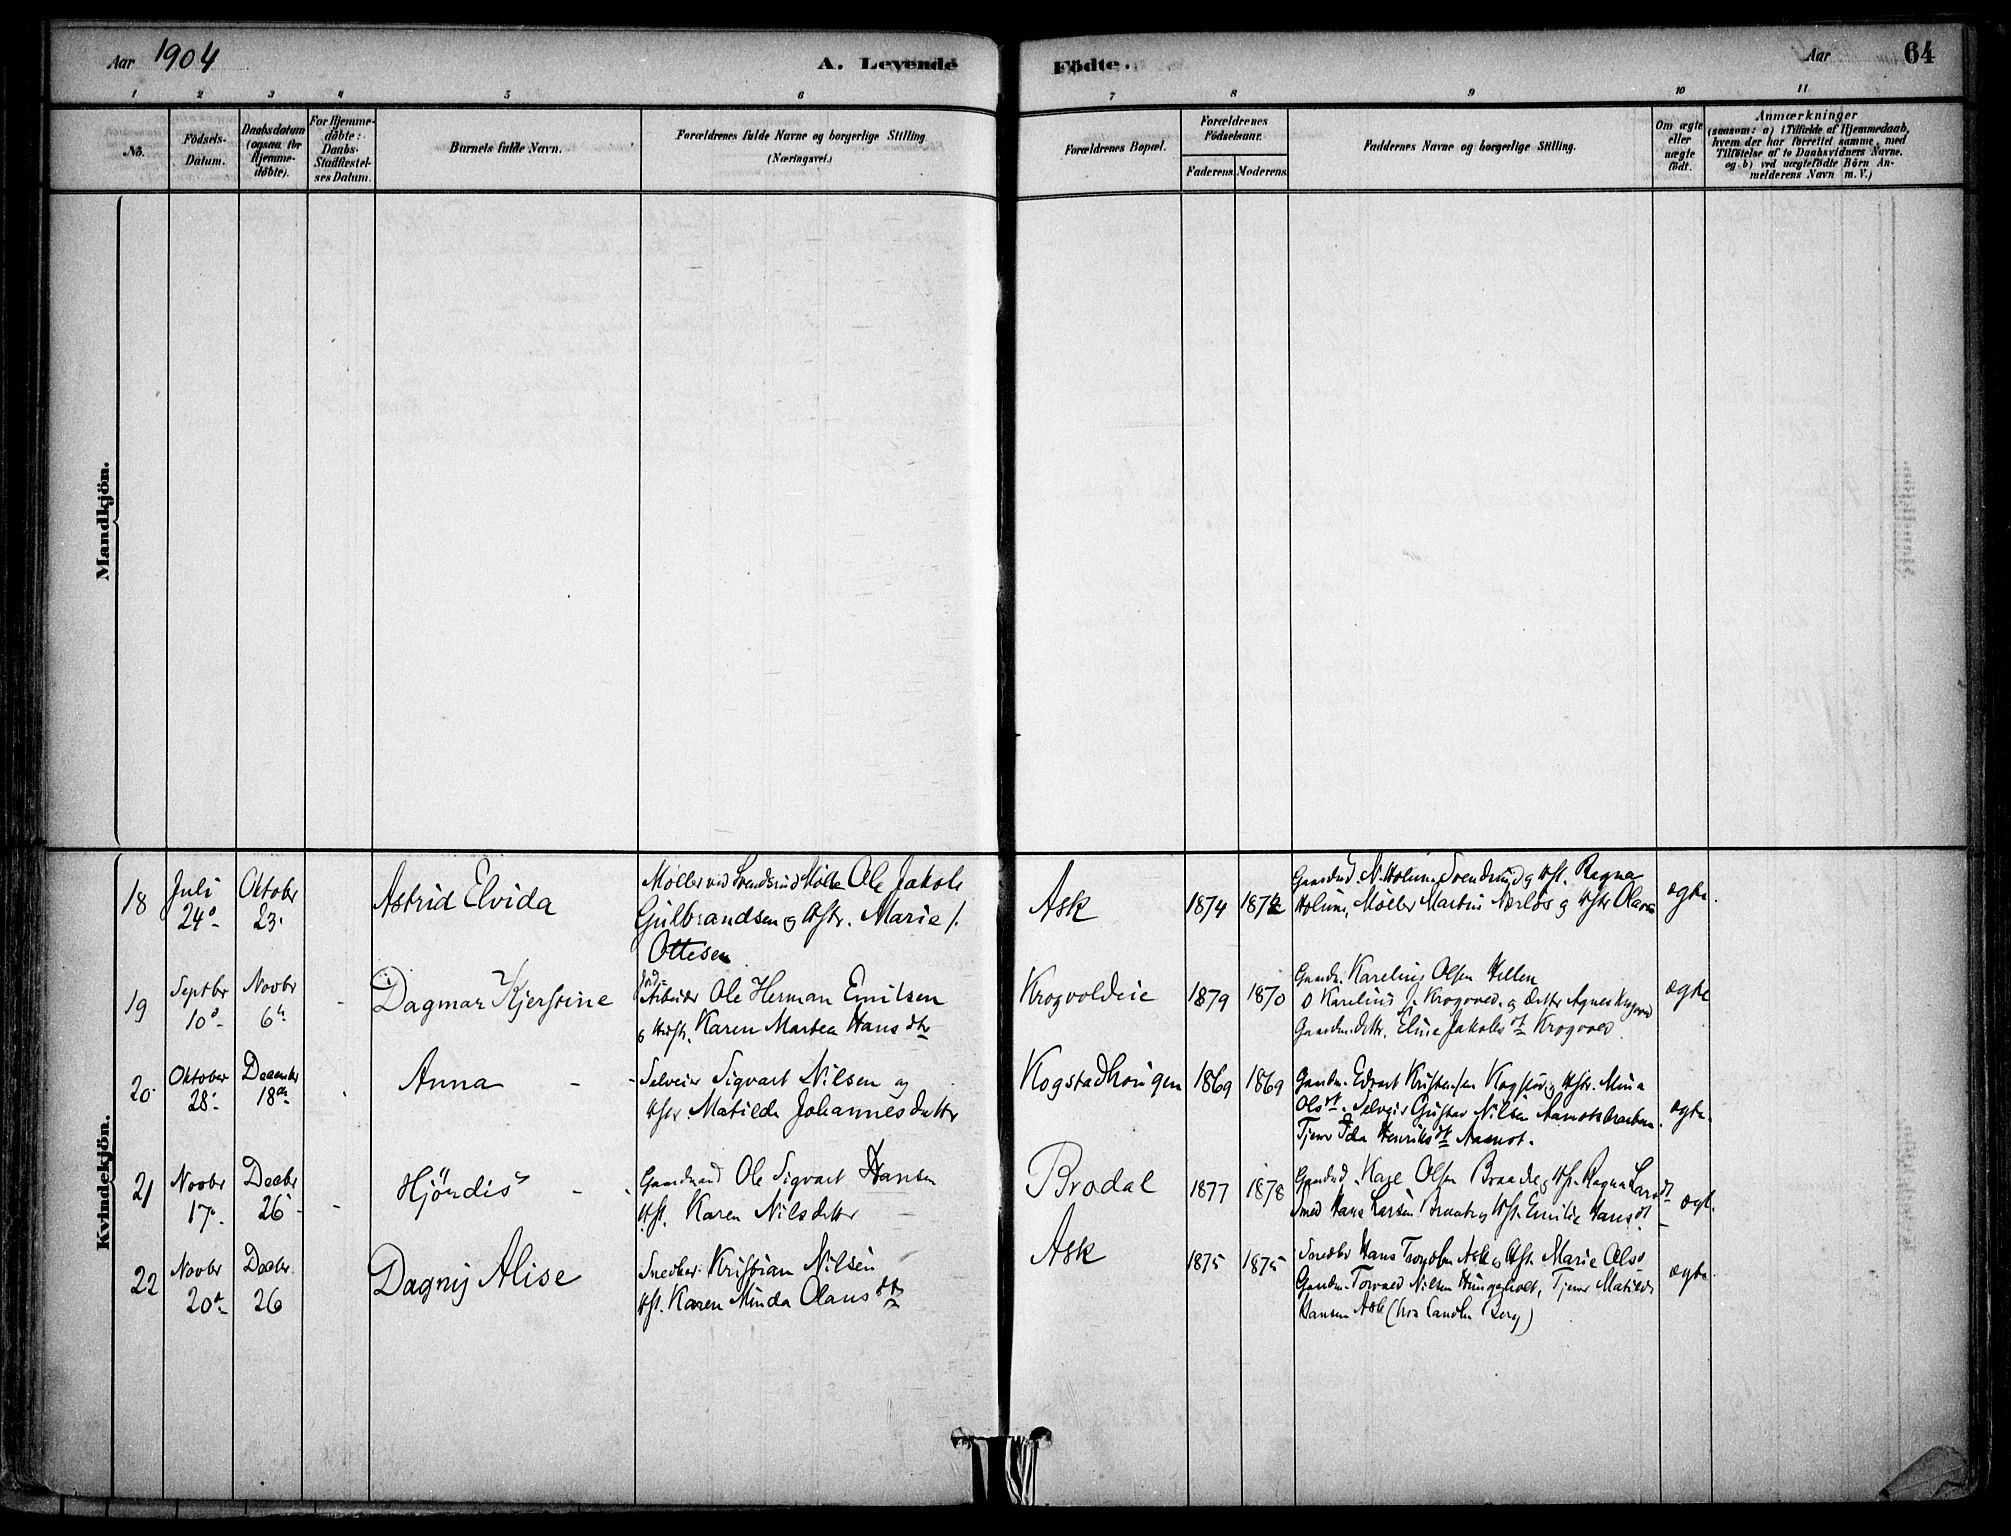 Aar 1904
A. Levende Födte.
Aar 64
1 2 3 4 5 6 7 8 9 10 11
No.
Födsels-Datum.
Daabsdatum (ogsaa for Hjemme-döbte).
For Hjemme-döbte: Daabs-Stadfæstel-ses Datum.
Barnets fulde Navn.
Forældrenes fulde Navne og borgerlige Stilling.
(Næringsvei.)
Forældrenes Bopæl.
Forældrenes Födselsaar.
Faderens. Moderens.
Faddernes Navne og borgerlige Stilling.
Om ægte eller uægte födt.
Anmærkninger
(saasom: a) i Tilfælde af Hjemmedaab,
hvem der har forrettet samme, med
Tilföielse af to Daabsvidners Navne.
og b) ved uægtefödte Börn An-
melderens Navn m. V.)
Mandkjön.
Kvindekjön.
18 Juli 24 Oktober 23
Astrid Elvida
Møller ved Ole Jakob
Gulbrandsen og Hstr. Marie
Ottesen
Ask 1874 1872
Gaardmd. N. Holum, Svendsrud og Hst. Ragna
Holum, Møller Martin og Hstr Olava
ægte.
19 Septbr 10 Novbr 6
Dagmar Kjerstine
Arbeider Ole Herman Emilsen
g Hustr. Karen Martea Hans dtr
Krogvoldeie 1879 1870
Gaardm. Karelius Olsen Hellen
Karelius Krogvold og Datter Agnes
Gaardm.dattr. Eline Jakobs dt Krogvold
ægte
20 Oktober 28 December 18de
Anna
Selveier Sigvart Nilsen og
Hstr. Matilde Johannesdatter
Kogstadhougen 1869 1869
Gaardm. Edvart Kristensen og Hstr. Mina
Olsdt. Selveir Gustav Nilsen
Tjener Ida Henriksdt Aamot.
ægte.
21 Novbr 17 Decbr 26
Hjördis
Gaardmd Ole Sigvart Hansen
Hst. Karen Nilsdatter
Brodal 1877 1878
Gaardmd. Olsen og Hst. Ragna Lars dt
Smed Hans Larsen og Hst. Emilie Hansdt
ægt.
22 Novbr 20 Decbr 26
Dagny Alise
Snedker Kristian Nilsen
Hst. Karen Minda Olausdtr
Ask 1875 1875
Snedker Hans Ask og Hst. Marie Olsd
Gaardm. Torvald Nilsen Hungeholt, Tjener Matilde
Hansen Ask (hos Landh. Berg)
ægte.